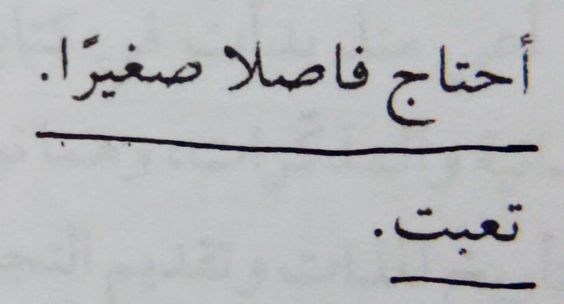 أحتاج فاصلا صغيرًا.
تعبت.